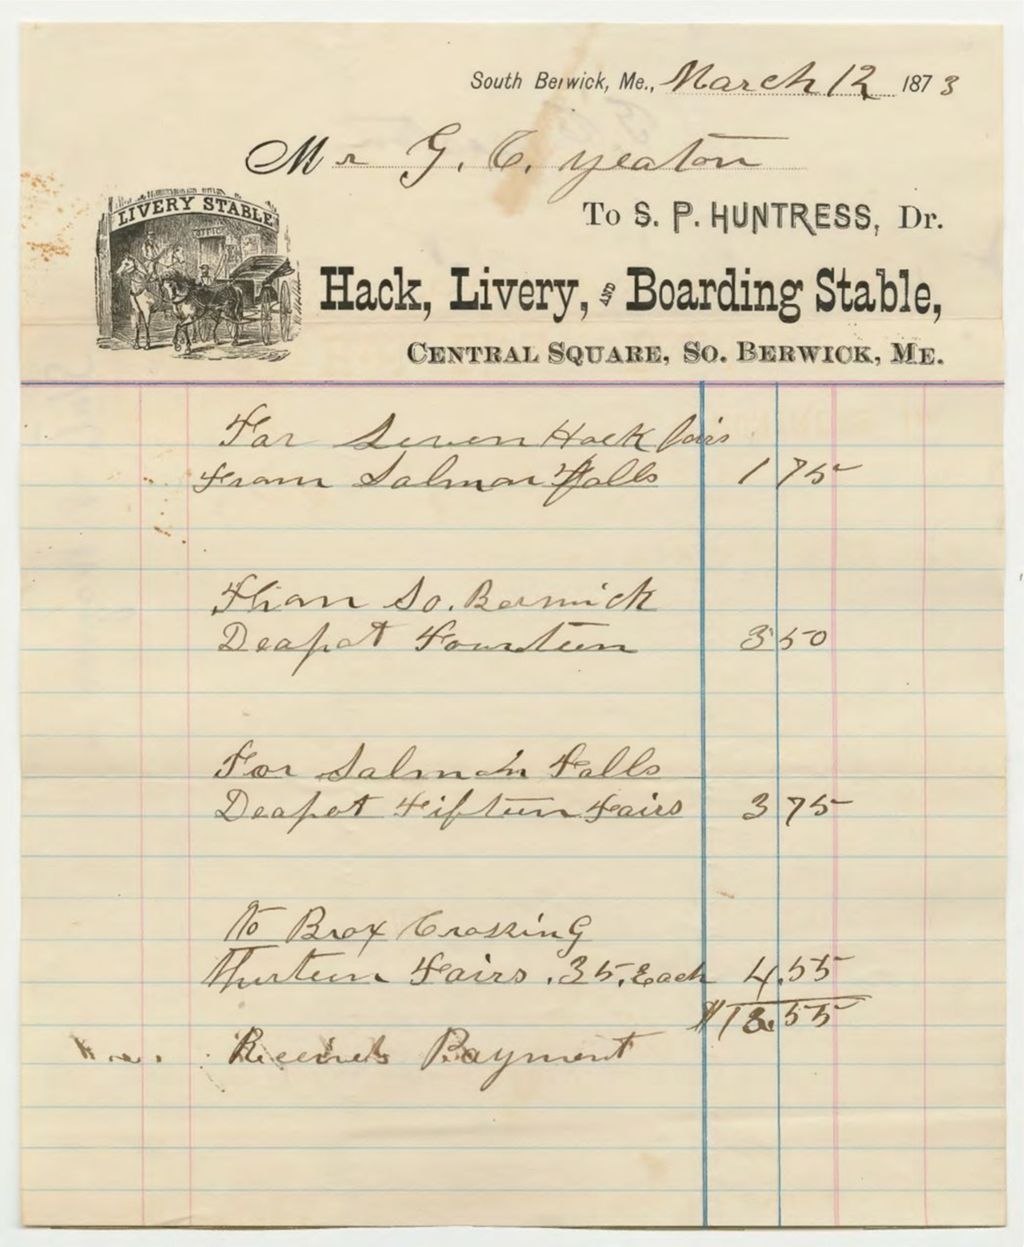 South Berwick, Me., March 12 1873
Mr G. C. Yeaton
To S. P. HUNTRESS, Dr.
LIVERY STABLE
OFFICE
Hack, Livery, AND Boarding Stable,
CENTRAL SQUARE, SO. BERWICK, ME.
For Seven Hack fairs
From Salmon Falls 1 75
From So. Berwick
Deapot Fourteen 3 50
For Salmon Falls
Deapot Fifteen Fairs 3 75
to Brox Crossing
Thurteen Fairs .35. Each 4.55
$13.55
Payment